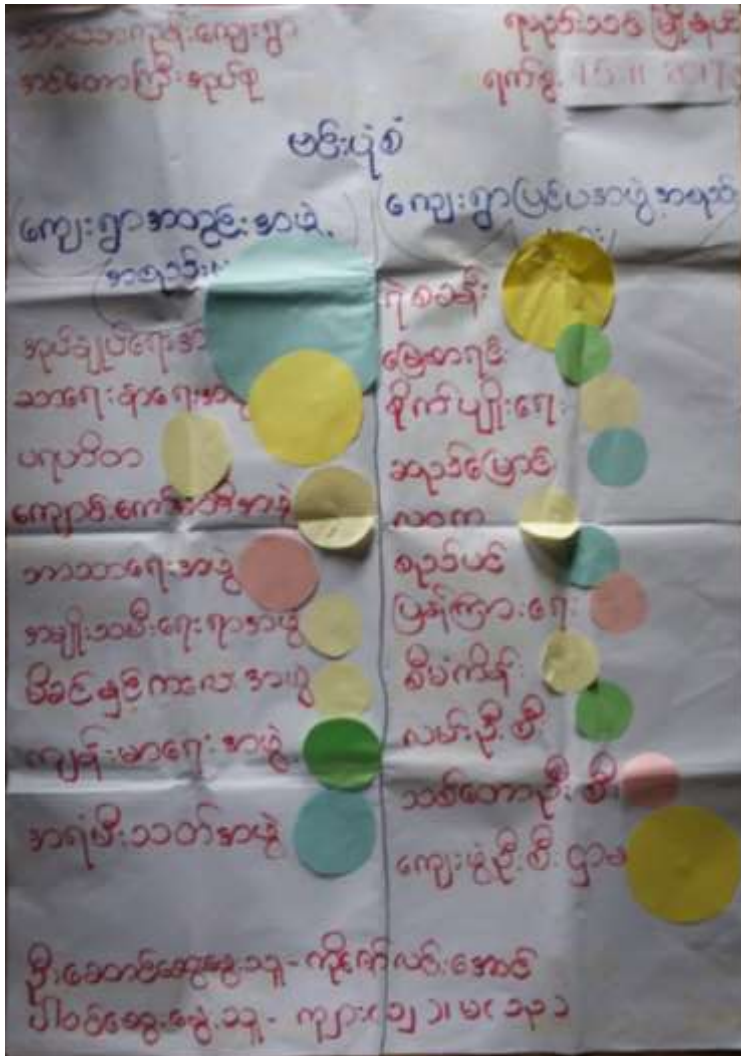 သာယာကုန်းကျေးရွာ
အင်တောကြီးအုပ်စု
မြို့နယ်
ရက်စွဲ 15 11 2017
ဗင်းပုံစံ
ကျေးရွာအတွင်းအဖွဲ့
အစည်း
ကျေးရွာပြင်ပအဖွဲ့အစည်း
အုပ်ချုပ်ရေး
သာရေးနာရေး
ပရဟိတ
ကျောင်းကော်မတီအဖွဲ့
ဘာသာရေးအဖွဲ့
အမျိုးသမီးရေးရာအဖွဲ့
မိခင်နှင့်ကလေးအဖွဲ့
ကျန်းမာရေးအဖွဲ့
အရံမီးသတ်အဖွဲ့
ရဲစခန်း
မြေစာရင်း
စိုက်ပျိုးရေး
ဆည်မြောင်း
လဝက
စည်ပင်
ပြန်ကြားရေး
စီမံကိန်း
လမ်းဦးစီး
သစ်တောဦးစီး
ကျေးဖွံ့ဦးစီးဌာန
ဦးဆောင်ဆွေးနွေးသူ-
ပါဝင်ဆွေးနွေးသူ- ကျား(၁၂)၊ မ(၁၃)